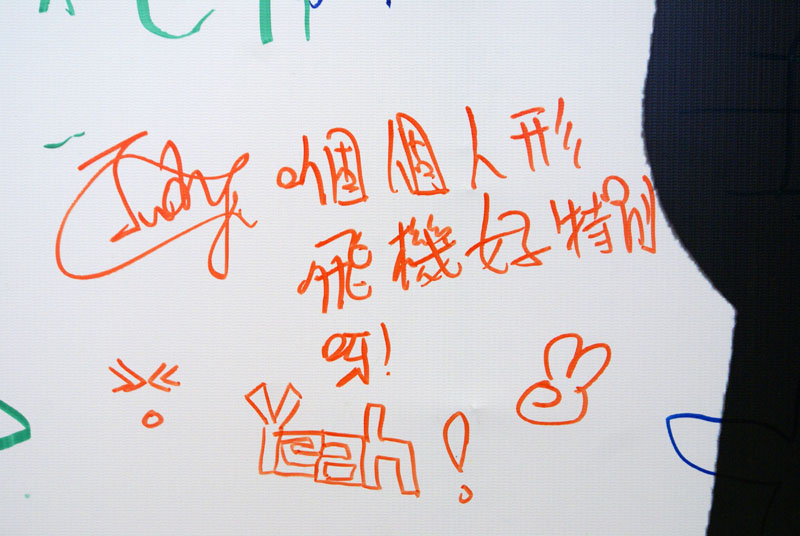 Judy
嗰個人形
飛機好特別
呀!
Yeah!